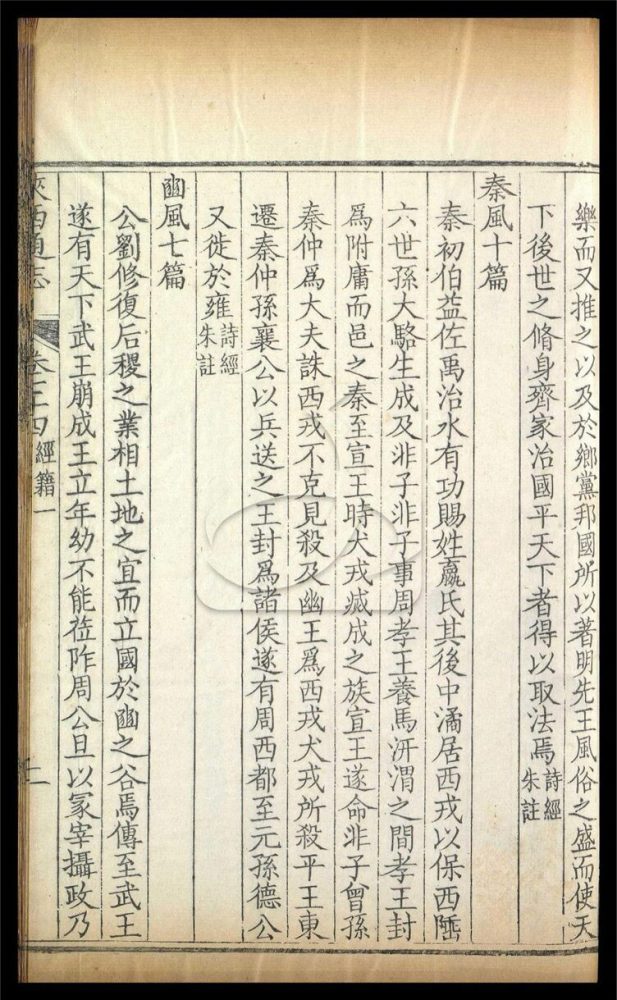 樂而又推之以及於鄉黨邦國所以著明先王風俗之盛而使天
下後世之脩身齊家治國平天下者得以取法焉詩經朱註
秦風十篇
秦初伯益佐禹治水有功賜姓嬴氏其後中潏居西戎以保西陲
六世孫大駱生成及非子非子事周孝王養馬汧渭之間孝王封
爲附庸而邑之秦至宣王時犬戎滅成之族宣王遂命非子曾孫
秦仲爲大夫誅西戎不克見殺及幽王爲西戎犬戎所殺平王東
遷秦仲孫襄公以兵送之王封爲諸侯遂有周西都至元孫德公
又徙於雍詩經朱註
豳風七篇
公劉修復后稷之業相土地之宜而立國於豳之谷焉傳至武王
遂有天下武王崩成王立年幼不能莅阼周公旦以冢宰攝政乃
陜西通志 卷三四 經籍一